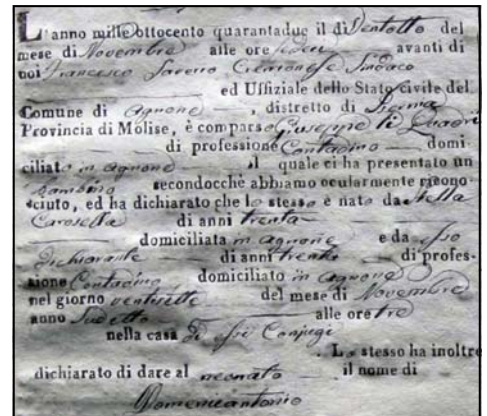 L'anno mille ottocento quarantadue il dì Ventotto del
mese di Novembre alle ore sedeci avanti di
noi Francesco Saverio Cremonese Sindaco
ed Uffiziale dello Stato Civile del
Comune di Agnone, distretto di Isernia
Provincia di Molise, è comparso Giuseppe di Quadri
di professione Contadino domi-
ciliato in Agnone il quale ci ha presentato un
bambino secondocchè abbiamo ocularmente ricono-
sciuto, ed ha dichiarato che lo stesso è nato da Stella
Carosella di anni trenta
domiciliata in Agnone e da esso
dichiarante di anni trenta di profes-
sione Contadino domiciliato in Agnone
nel giorno ventisette del mese di Novembre
anno Sudetto alle ore tre
nella casa di essi Conjugi
. Lo stesso ha inoltre
dichiarato di dare al neonato il nome di
Domenicantonio